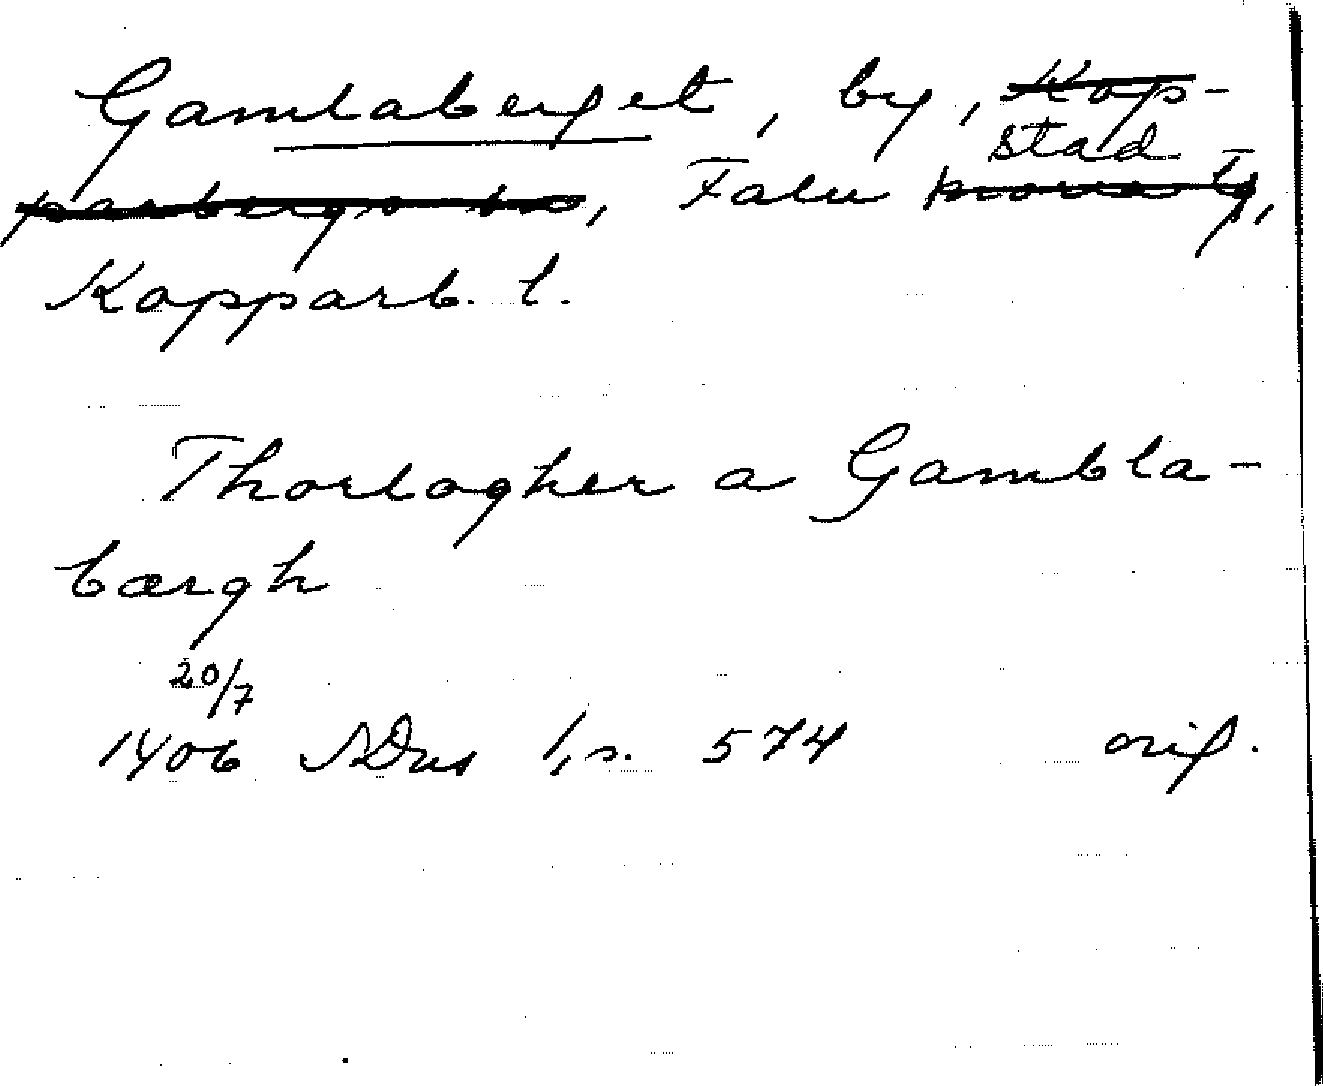 Gamlaberget, by, Kop-
stad
parbergs sn, Falu provstg,
Kopparb. l.
Thorlogher a Gambla-
bærgh
20/7
1406 SDns 1, s. 574 orig.